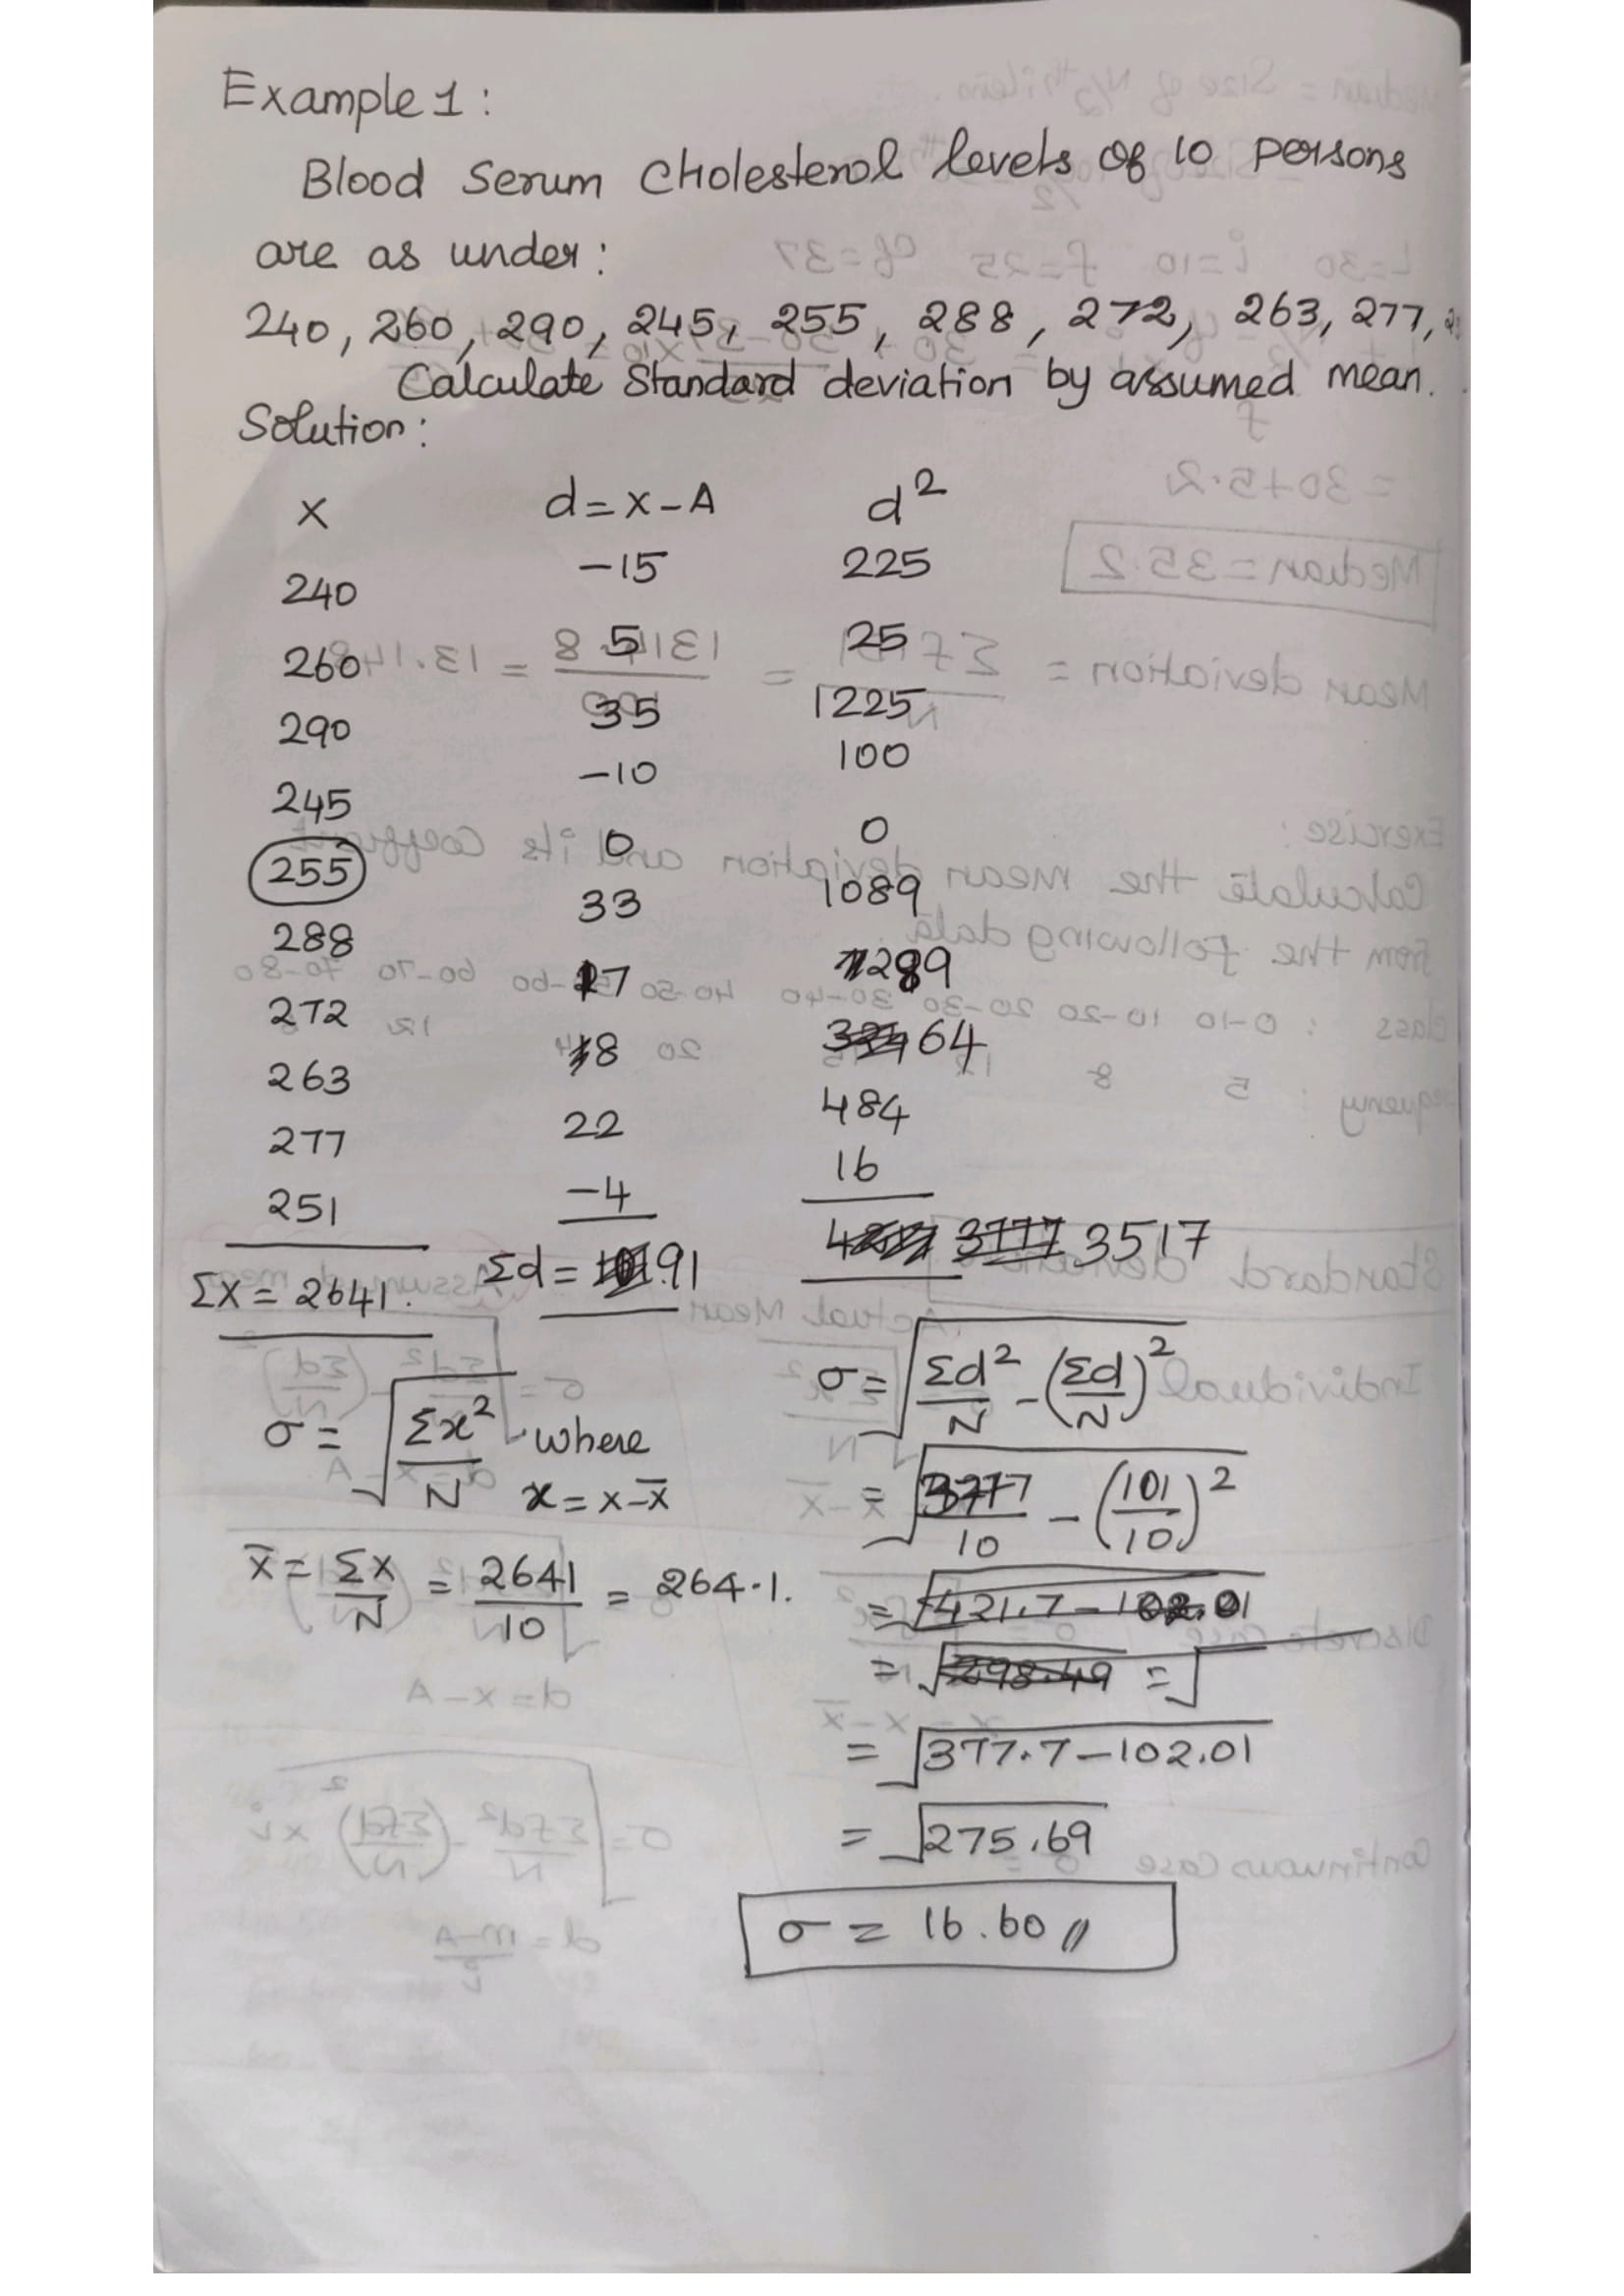 Example 1:
Blood Serum Cholesterol levels of 10 persons
are as under:
240, 260, 290, 245, 255, 288, 272, 263, 277,
Calculate Standard deviation by assumed mean.
Solution:
X d = X - A d²
240 -15 225
260 5 25
290 35 1225
245 -10 100
255 0 0
288 33 1089
272 17 289
263 8 64
277 22 484
251 -4 16
ΣX = 2641. Σd = 91 3777 3517
σ = √(Σx²/N) where
x = X - X̄
X̄ = ΣX/N = 2641/10 = 264.1.
σ = √(Σd²/N - (Σd/N)²)
= √(3777/10 - (101/10)²)
= √(421.7 - 102.01)
= √298.49 = √
= √(377.7 - 102.01)
= √275.69
σ = 16.60 //